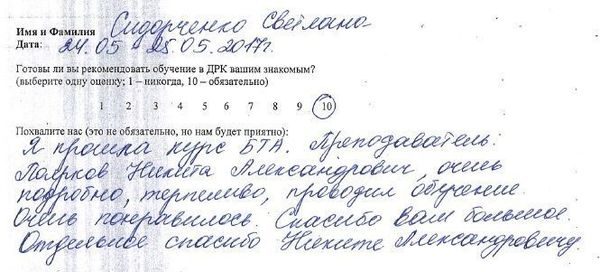 Имя и Фамилия Сидорченко Светлана
Дата: 24.05 - 25.05.2017г.
Готовы ли вы рекомендовать обучение в ДРК вашим знакомым?
(выберите одну оценку; 1 – никогда, 10 – обязательно)
1 2 3 4 5 6 7 8 9 10
Похвалите нас (это не обязательно, но нам будет приятно):
Я прошла курс БТА. Преподаватель:
Поярков Никита Александрович, очень
подробно, терпеливо, проводил обучение.
Очень понравилось. Спасибо вам большое.
Отдельное спасибо Никите Александровичу